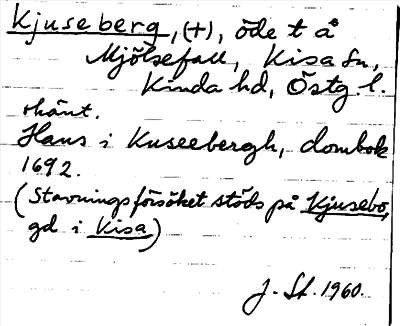 Kjuseberg, (+), öde t å
Mjölsefall, Kisa sn,
Kinda hd, Östg. l.
okänt.
Hans i Kuseebergh, dombok
1692.
(Stavningsförsöket stöds på Kjusebo,
gd i Kisa)
J. St. 1960.